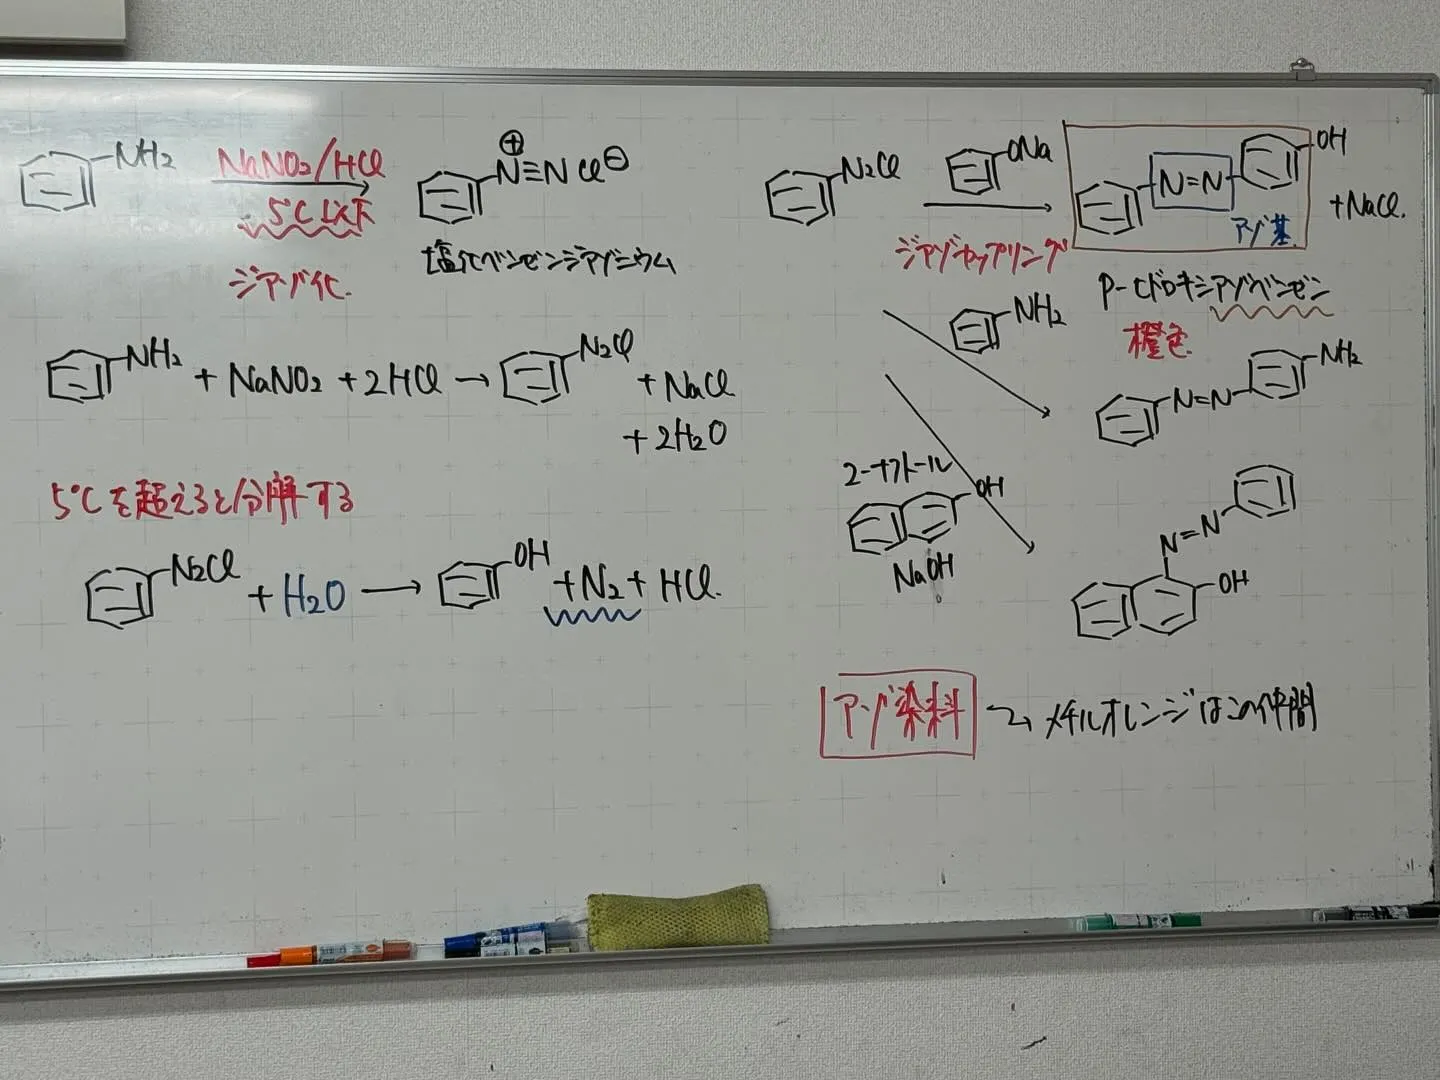 NH2
NaNO2/HCl
5℃以下
ジアゾ化.
⊕
N≡N Cl⊖
塩化ベンゼンジアゾニウム
NH2 + NaNO2 + 2HCl → N2Cl + NaCl
+ 2H2O
5℃を超えると分解する
N2Cl + H2O → OH + N2 + HCl.
N2Cl
ONa
ジアゾカップリング
N=N
OH
アゾ基.
+ NaCl.
p-ヒドロキシアゾベンゼン
橙色.
NH2
N=N
NH2
2-ナフトール
OH
NaOH
N=N
OH
アゾ染料
メチルオレンジはこの仲間